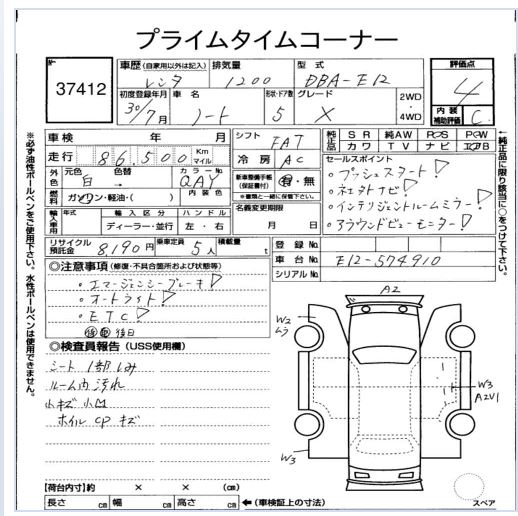 プライムタイムコーナー
37412
車歴 (自家用以外は記入) レンタ
排気量 1200
型式 DBA-E12
評価点 4
初度登録年月 30/7月
車名 ノート
形状・ドア数 5
グレード X
2WD
4WD
内装補助評価 C
車検 年 月
走行 86,500 Km マイル
シフト FAT
冷房 AC
純正品 SR 純AW PS PW
カワ TV ナビ エアB
外色 元色 白 色替 → カラーNo. QAY
内装色
燃料 ガソリン・軽油・( )
新車整備手帳(保証書付) 有・無
※書類と一緒に保管下さい。
名義変更期限
月 日
セールスポイント
・プッシュスタート!
・ネェタナビ!
・インテリジェントルームミラー!
・アラウンドビューモニター!
輸入車用 年式 輸入区分 ハンドル
ディーラー・並行 左・右
リサイクル預託金 8,190円
乗車定員 5人
積載量 t
登録No.
車台No. E12-574910
シリアルNo.
◎注意事項 (修復・不具合箇所および状態等)
・エマージェンシーブレーキ!
・オートライト!
・ETC!
後日
◎検査員報告 (USS使用欄)
シート1部しみ
ルーム内汚れ
小キズ 小凹
ホイルcpキズ
A2
W2
ムラ
W3
A2V1
W3
【荷台内寸】約 × × (cm)
長さ cm 幅 cm 高さ cm ←(車検証上の寸法)
スペア
※必ず油性ボールペンをご使用下さい。水性ボールペンは使用できません。
←純正品に限り該当に○をつけて下さい。